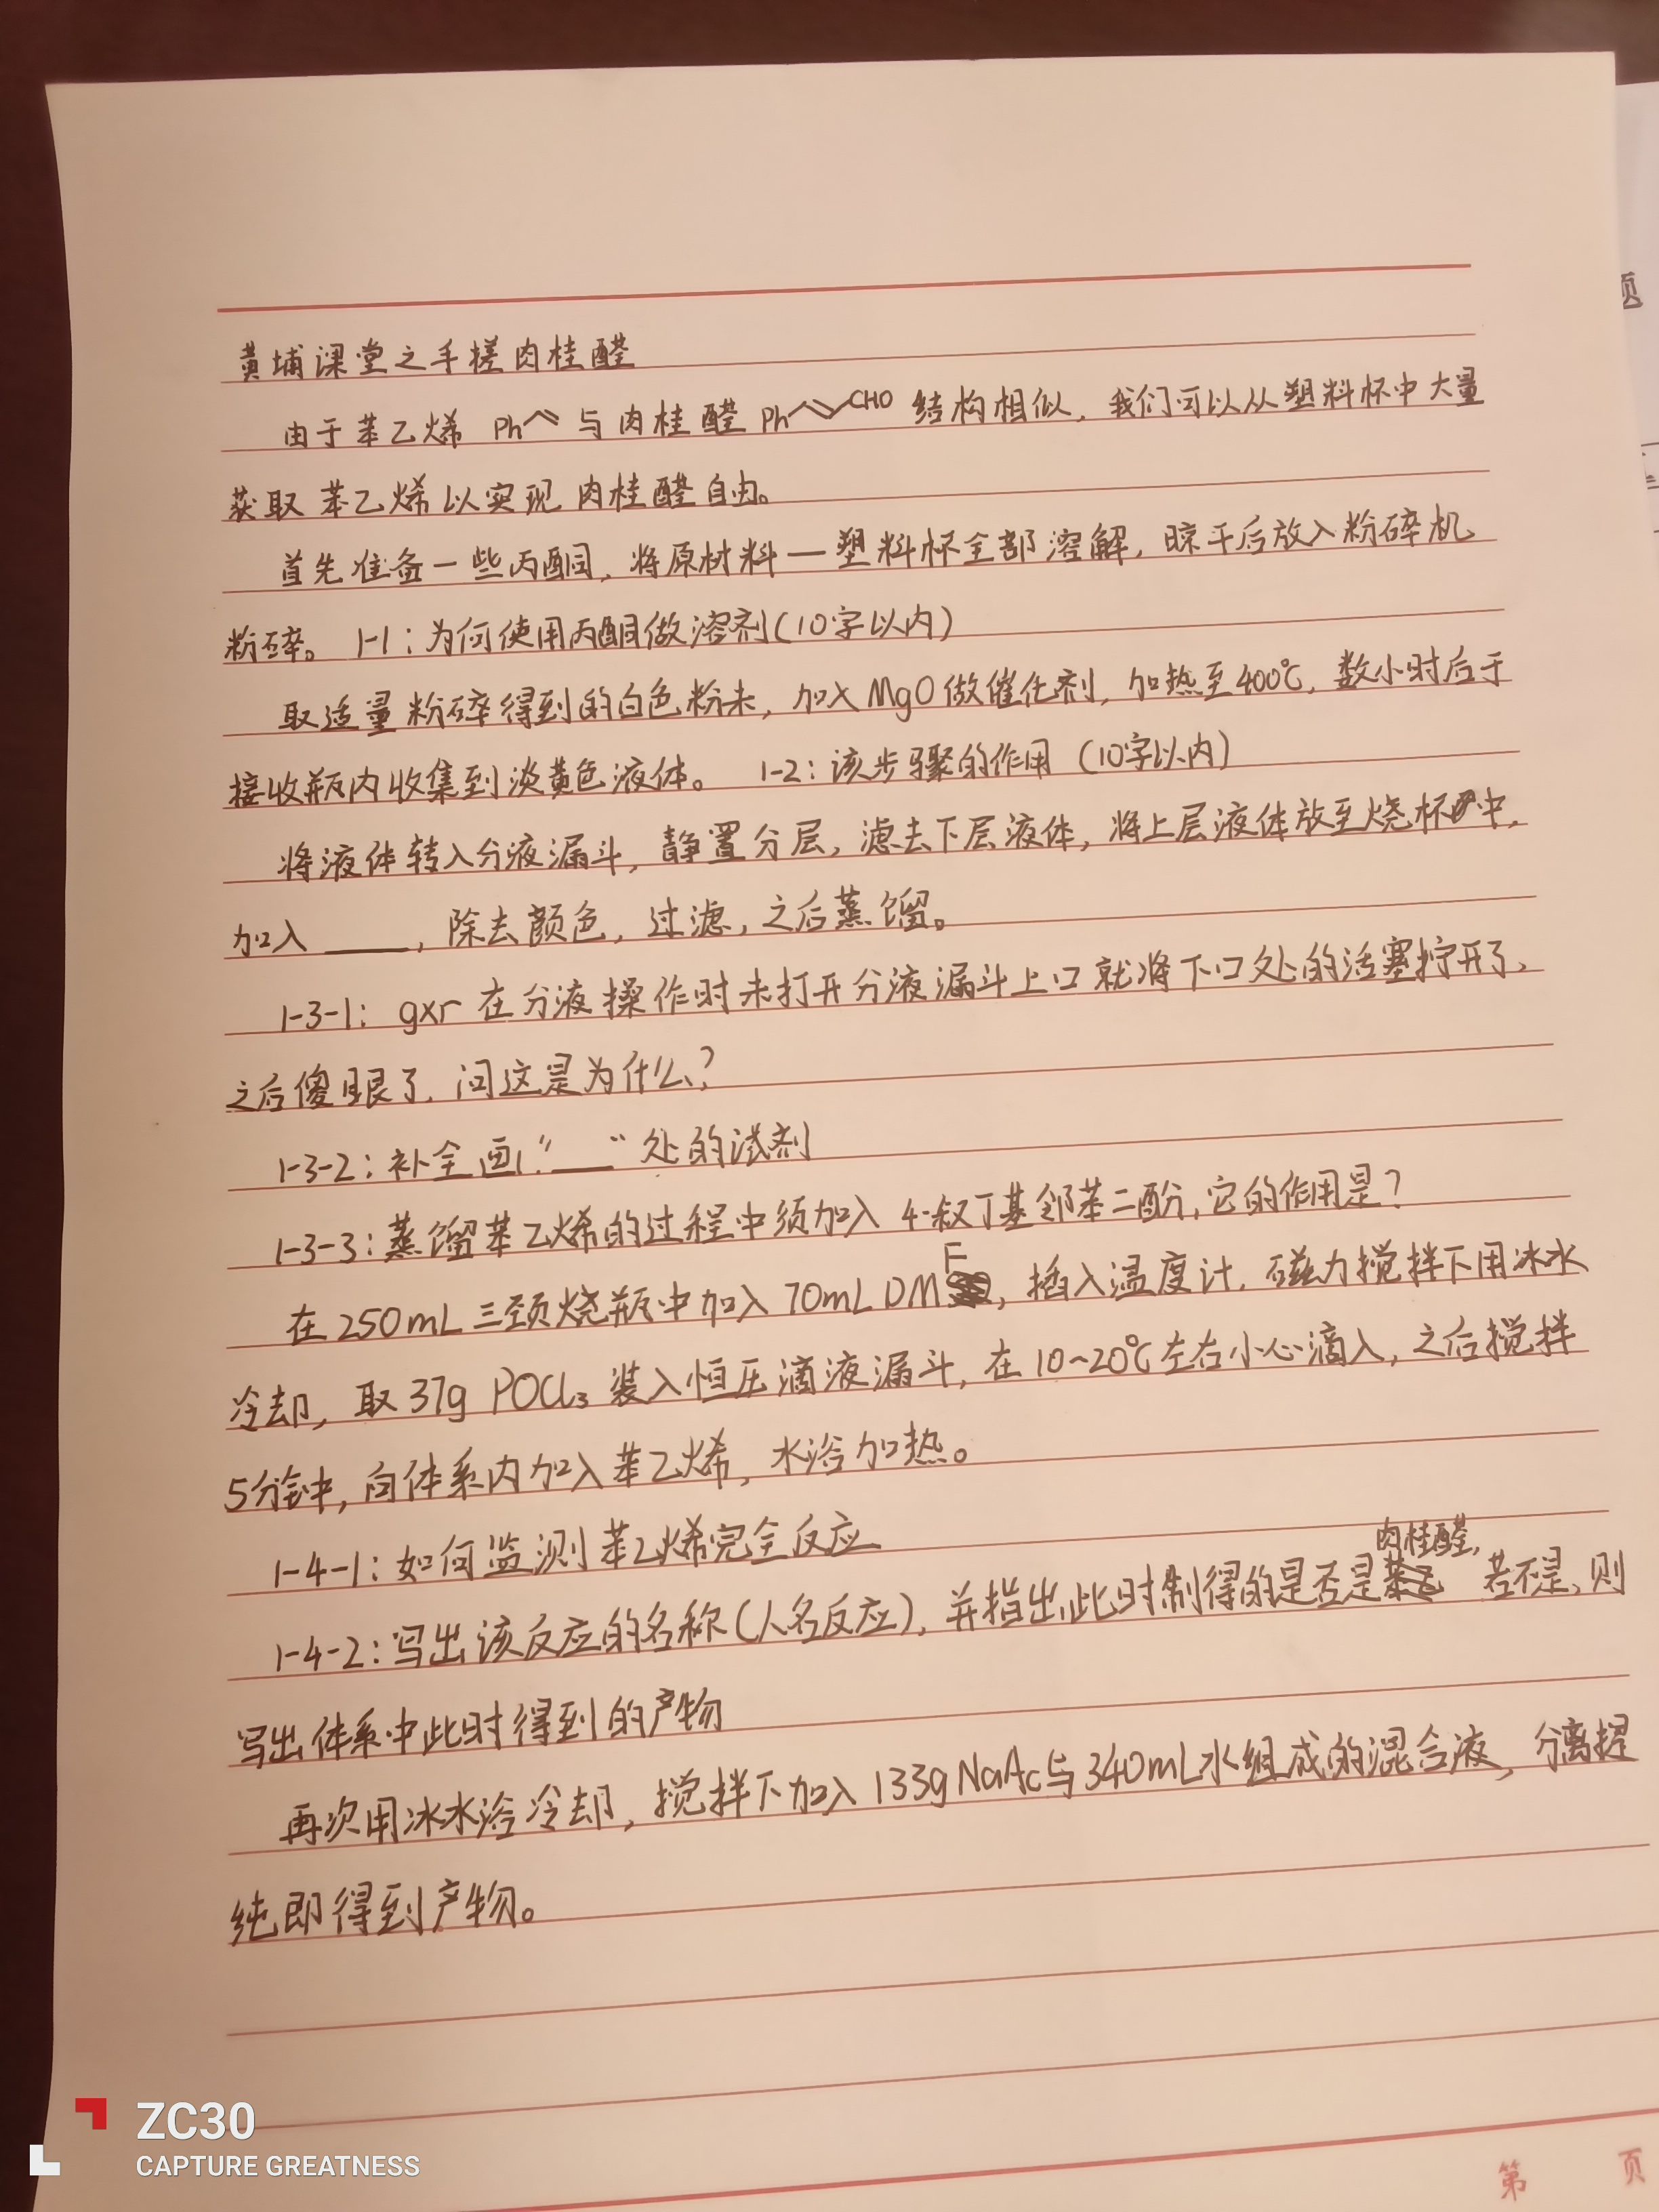 黄埔课堂之手搓肉桂醛
由于苯乙烯 Ph 与肉桂醛 Ph CHO 结构相似，我们可以从塑料杯中大量
获取苯乙烯以实现肉桂醛自由。
首先准备一些丙酮，将原材料—塑料杯全部溶解，晾干后放入粉碎机
粉碎。 1-1：为何使用丙酮做溶剂（10字以内）
取适量粉碎得到的白色粉末，加入MgO做催化剂，加热至400℃，数小时后于
接收瓶内收集到淡黄色液体。 1-2：该步骤的作用（10字以内）
将液体转入分液漏斗，静置分层，滤去下层液体，将上层液体放至烧杯中，
加入 ____，除去颜色，过滤，之后蒸馏。
1-3-1： gxr 在分液操作时未打开分液漏斗上口就将下口处的活塞拧开了、
之后傻眼了，问这是为什么？
1-3-2：补全画“___”处的试剂
1-3-3：蒸馏苯乙烯的过程中须加入 4-叔丁基邻苯二酚，它的作用是？
在250mL三颈烧瓶中加入70mL DMF，插入温度计，磁力搅拌下用冰水
冷却，取37g POCl₃ 装入恒压滴液漏斗，在10~20℃左右小心滴入，之后搅拌
5分钟，向体系内加入苯乙烯，水浴加热。
1-4-1：如何监测苯乙烯完全反应
1-4-2：写出该反应的名称（人名反应），并指出此时制得的是否是肉桂醛，若不是，则
写出体系中此时得到的产物
再次用冰水浴冷却，搅拌下加入133g NaAc与340mL水组成的混合液，分离提
纯即得到产物。
第 页
题
ZC30
CAPTURE GREATNESS